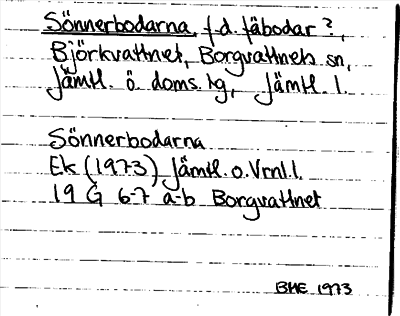 Sönnerbodarna, f.d. fäbodar?,
Björkvattnet, Borgvattnets sn,
Jämtl. ö doms. tg, Jämtl. l.
Sönnerbodarna
Ek (1973) Jämtl. o. Vrnl. l.
19 G 6-7 a-b Borgvattnet
BHE 1973